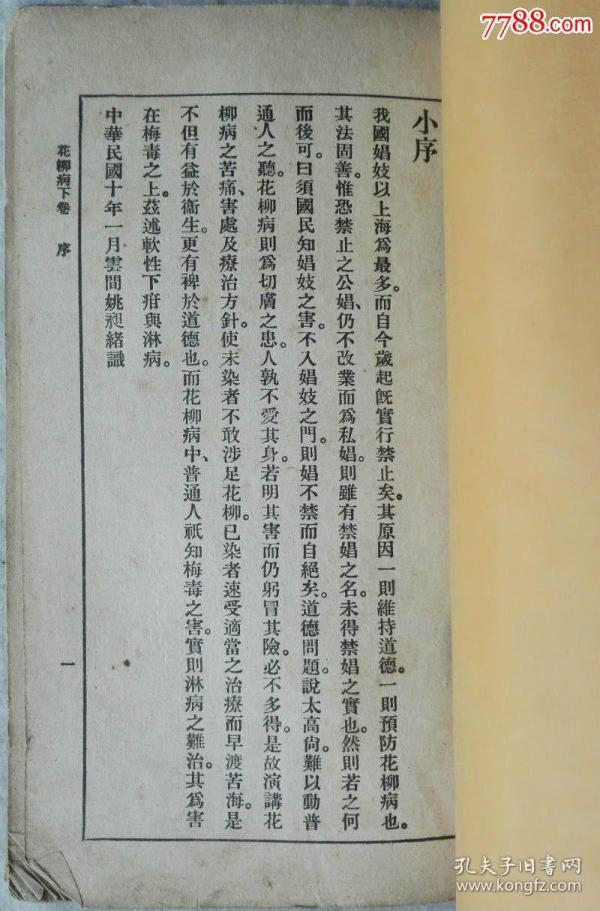 7788.com
小序
我國娼妓以上海爲最多。而自今歲起旣實行禁止矣。其原因一則維持道德。一則預防花柳病也。
其法固善。惟恐禁止之公娼、仍不改業而爲私娼。則雖有禁娼之名。未得禁娼之實也。然則若之何
而後可。曰須國民知娼妓之害。不入娼妓之門。則娼不禁而自絕矣。道德問題。說太高尙。難以動普
通人之聽。花柳病則爲切膚之患。人孰不愛其身。若明其害而仍躬冒其險。必不多得。是故演講花
柳病之苦痛、害處及療治方針。使未染者不敢涉足花柳。已染者速受適當之治療而早渡苦海。是
不但有益於衞生。更有裨於道德也。而花柳病中、普通人祇知梅毒之害。實則淋病之難治。其爲害
在梅毒之上。茲述軟性下疳與淋病。
中華民國十年一月雲間姚昶緒識
花柳病下卷 序
一
孔夫子旧书网
www.kongfz.com